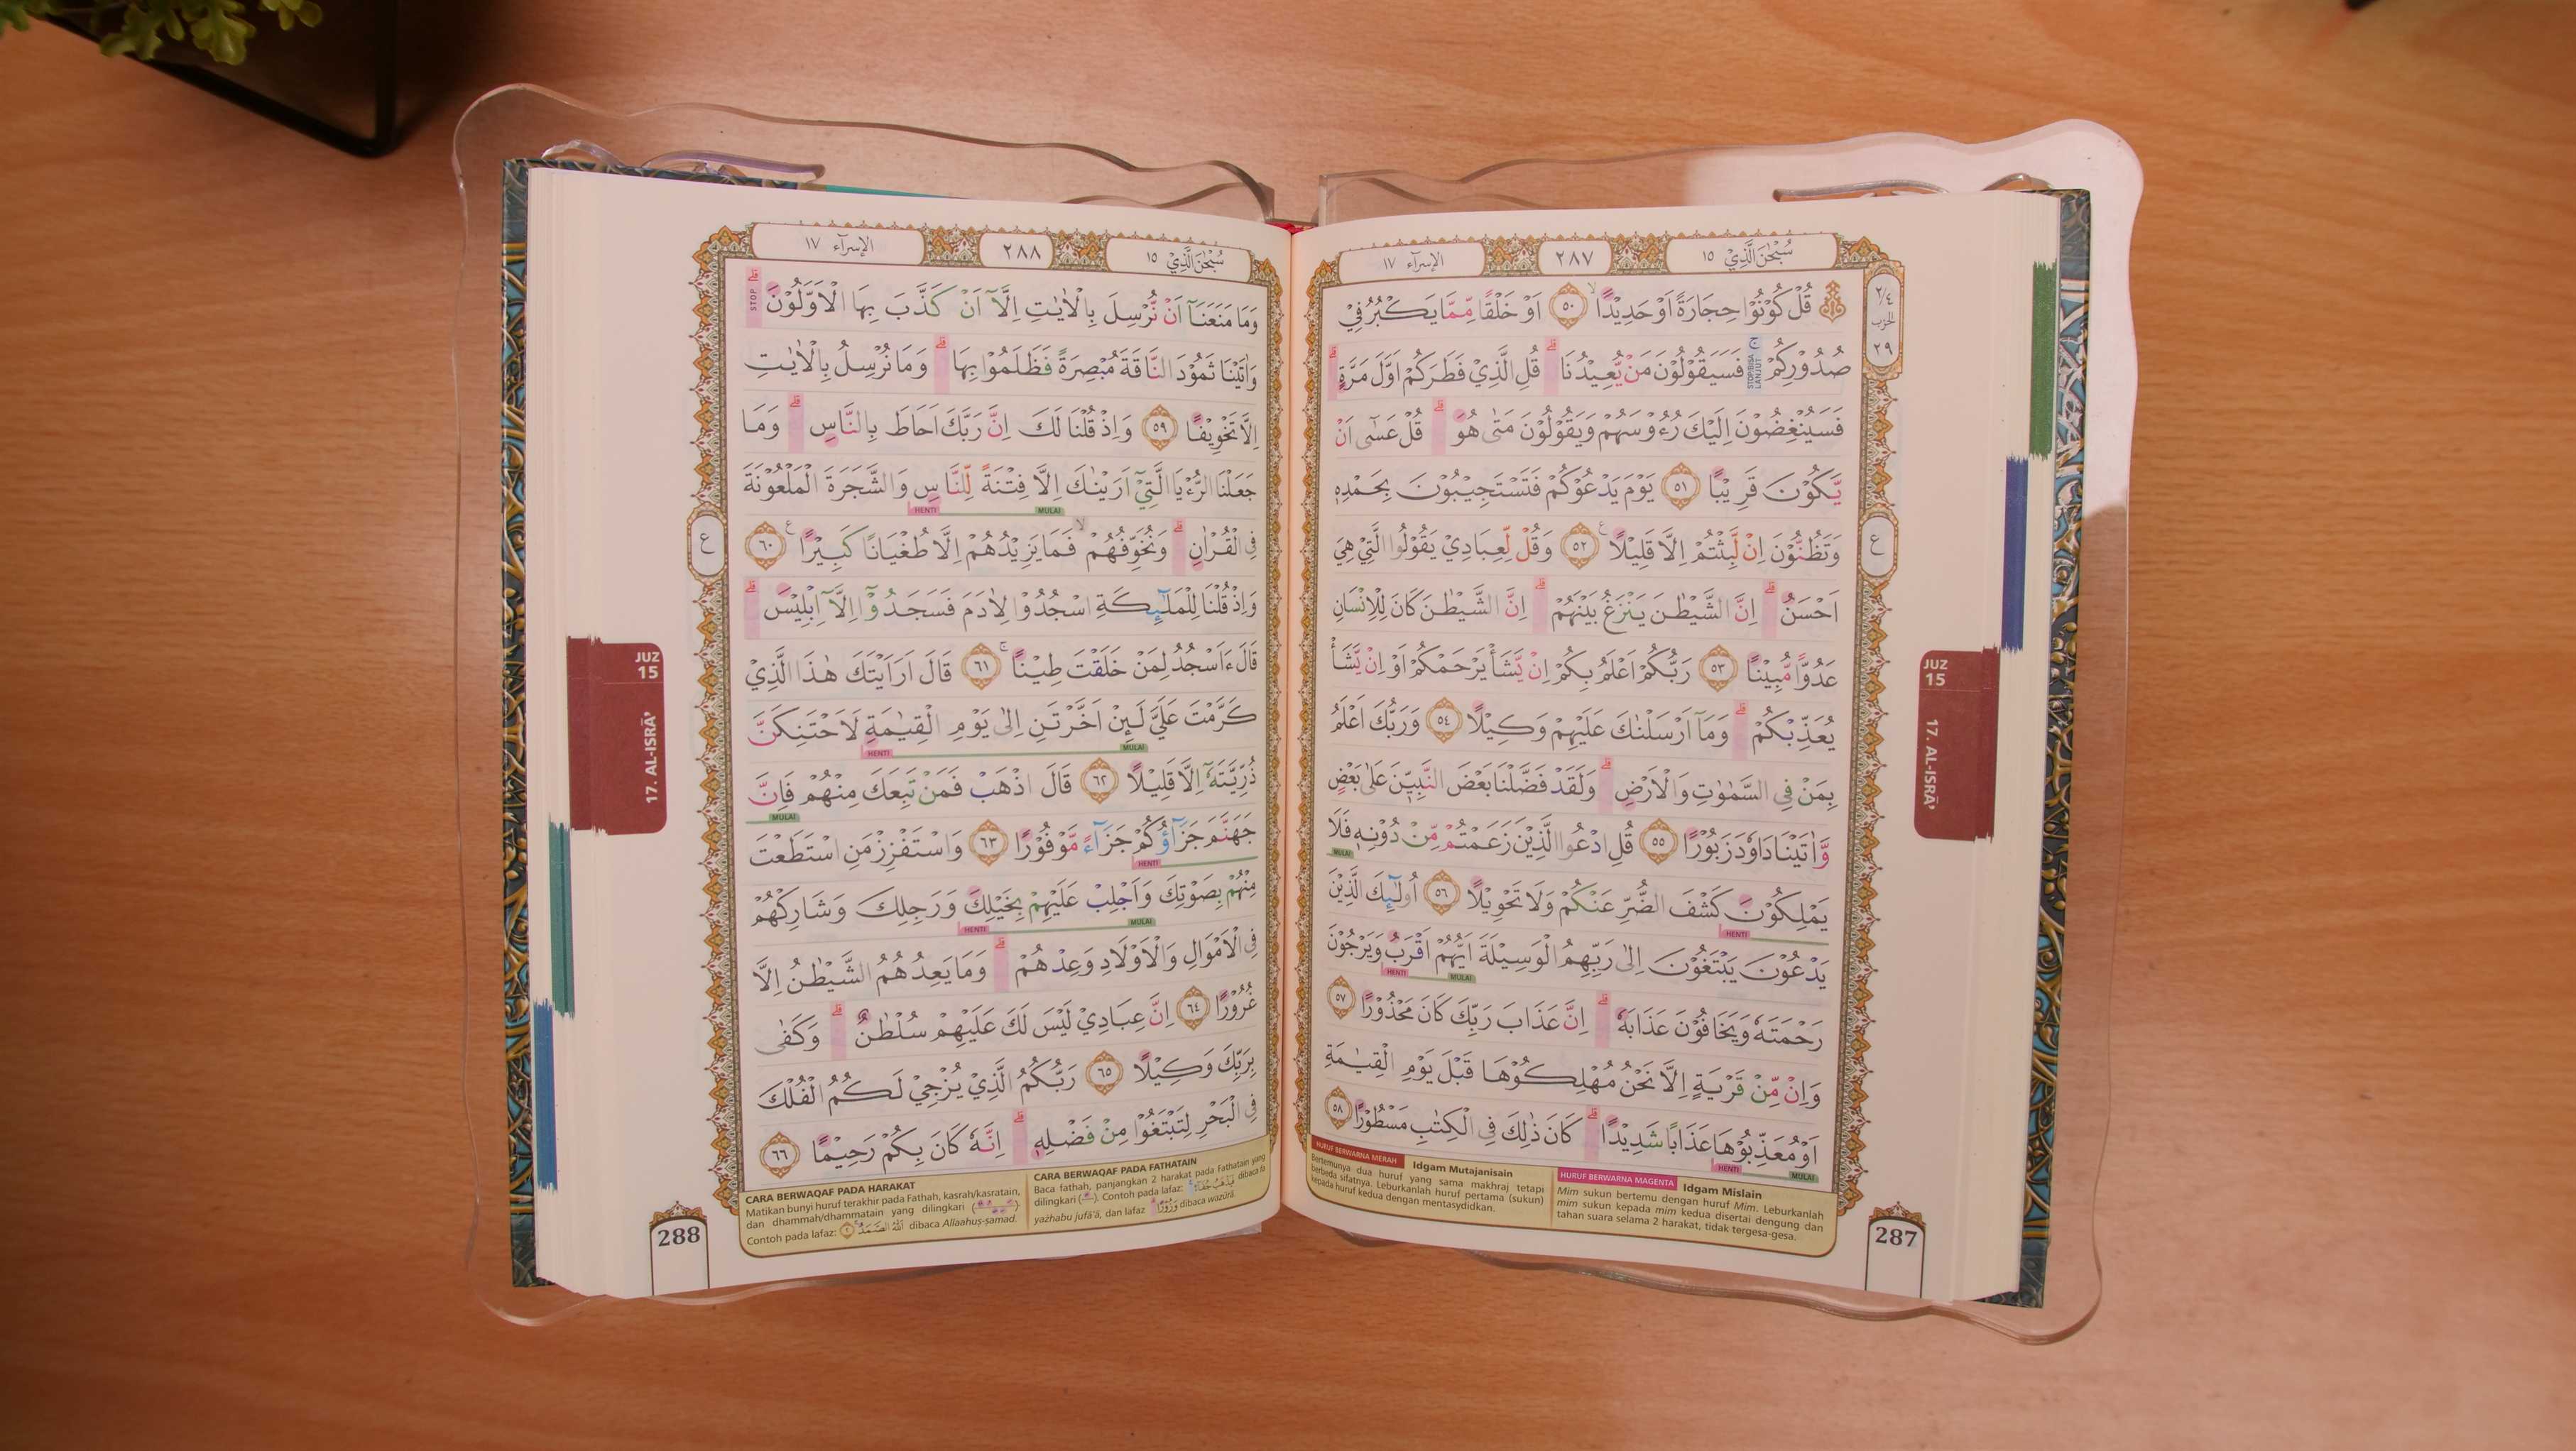 سُبْحٰنَ الَّذِيْ ١٥
٢٨٧
الإسرآء ١٧
٢/٤
الحزب
٢٩
۞ قُلْ كُوْنُوْا حِجَارَةً اَوْ حَدِيْدًاۙ ٥٠ اَوْ خَلْقًا مِّمَّا يَكْبُرُ فِيْ
صُدُوْرِكُمْۚ STOP/BISA LANJUT فَسَيَقُوْلُوْنَ مَنْ يُّعِيْدُنَاۗ قُلِ الَّذِيْ فَطَرَكُمْ اَوَّلَ مَرَّةٍۗ
فَسَيُنْغِضُوْنَ اِلَيْكَ رُءُوْسَهُمْ وَيَقُوْلُوْنَ مَتٰى هُوَۗ قُلْ عَسٰٓى اَنْ
يَّكُوْنَ قَرِيْبًا ٥١ يَوْمَ يَدْعُوْكُمْ فَتَسْتَجِيْبُوْنَ بِحَمْدِهٖ
وَتَظُنُّوْنَ اِنْ لَّبِثْتُمْ اِلَّا قَلِيْلًا ࣖ ٥٢ وَقُلْ لِّعِبَادِيْ يَقُوْلُوا الَّتِيْ هِيَ
ع
اَحْسَنُۗ اِنَّ الشَّيْطٰنَ يَنْزَغُ بَيْنَهُمْۗ اِنَّ الشَّيْطٰنَ كَانَ لِلْاِنْسَانِ
عَدُوًّا مُّبِيْنًا ٥٣ رَبُّكُمْ اَعْلَمُ بِكُمْ اِنْ يَّشَأْ يَرْحَمْكُمْ اَوْ اِنْ يَّشَأْ
يُعَذِّبْكُمْۗ وَمَآ اَرْسَلْنٰكَ عَلَيْهِمْ وَكِيْلًا ٥٤ وَرَبُّكَ اَعْلَمُ
بِمَنْ فِى السَّمٰوٰتِ وَالْاَرْضِۗ وَلَقَدْ فَضَّلْنَا بَعْضَ النَّبِيّٖنَ عَلٰى بَعْضٍ
وَّاٰتَيْنَا دَاوٗدَ زَبُوْرًا ٥٥ قُلِ ادْعُوا الَّذِيْنَ زَعَمْتُمْ مِّنْ دُوْنِهٖ فَلَا
MULAI
يَمْلِكُوْنَ كَشْفَ الضُّرِّ عَنْكُمْ وَلَا تَحْوِيْلًا ٥٦ اُولٰۤىِٕكَ الَّذِيْنَ
HENTI
يَدْعُوْنَ يَبْتَغُوْنَ اِلٰى رَبِّهِمُ الْوَسِيْلَةَ اَيُّهُمْ اَقْرَبُ وَيَرْجُوْنَ
MULAI HENTI
رَحْمَتَهٗ وَيَخَافُوْنَ عَذَابَهٗۗ اِنَّ عَذَابَ رَبِّكَ كَانَ مَحْذُوْرًا ٥٧
وَاِنْ مِّنْ قَرْيَةٍ اِلَّا نَحْنُ مُهْلِكُوْهَا قَبْلَ يَوْمِ الْقِيٰمَةِ
اَوْ مُعَذِّبُوْهَا عَذَابًا شَدِيْدًاۗ كَانَ ذٰلِكَ فِى الْكِتٰبِ مَسْطُوْرًا ٥٨
MULAI HENTI
HURUF BERWARNA MERAH Idgam Mutajanisain
Bertemunya dua huruf yang sama makhraj tetapi
berbeda sifatnya. Leburkanlah huruf pertama (sukun)
kepada huruf kedua dengan mentasydidkan.
HURUF BERWARNA MAGENTA Idgam Mislain
Mim sukun bertemu dengan huruf Mim. Leburkanlah
mim sukun kepada mim kedua disertai dengung dan
tahan suara selama 2 harakat, tidak tergesa-gesa.
287
JUZ
15
17. AL-ISRĀ'
سُبْحٰنَ الَّذِيْ ١٥
٢٨٨
الإسرآء ١٧
وَمَا مَنَعَنَآ اَنْ نُّرْسِلَ بِالْاٰيٰتِ اِلَّآ اَنْ كَذَّبَ بِهَا الْاَوَّلُوْنَۗ STOP
وَاٰتَيْنَا ثَمُوْدَ النَّاقَةَ مُبْصِرَةً فَظَلَمُوْا بِهَاۗ وَمَا نُرْسِلُ بِالْاٰيٰتِ
اِلَّا تَخْوِيْفًا ٥٩ وَاِذْ قُلْنَا لَكَ اِنَّ رَبَّكَ اَحَاطَ بِالنَّاسِۗ وَمَا
جَعَلْنَا الرُّءْيَا الَّتِيْٓ اَرَيْنٰكَ اِلَّا فِتْنَةً لِّلنَّاسِ وَالشَّجَرَةَ الْمَلْعُوْنَةَ
MULAI HENTI
فِى الْقُرْاٰنِۗ وَنُخَوِّفُهُمْۙ فَمَا يَزِيْدُهُمْ اِلَّا طُغْيَانًا كَبِيْرًا ࣖ ٦٠
ع
وَاِذْ قُلْنَا لِلْمَلٰۤىِٕكَةِ اسْجُدُوْا لِاٰدَمَ فَسَجَدُوْٓا اِلَّآ اِبْلِيْسَۗ
قَالَ ءَاَسْجُدُ لِمَنْ خَلَقْتَ طِيْنًاۚ ٦١ قَالَ اَرَاَيْتَكَ هٰذَا الَّذِيْ
كَرَّمْتَ عَلَيَّ لَىِٕنْ اَخَّرْتَنِ اِلٰى يَوْمِ الْقِيٰمَةِ لَاَحْتَنِكَنَّ
MULAI HENTI
ذُرِّيَّتَهٗٓ اِلَّا قَلِيْلًا ٦٢ قَالَ اذْهَبْ فَمَنْ تَبِعَكَ مِنْهُمْ فَاِنَّ
MULAI
جَهَنَّمَ جَزَاۤؤُكُمْ جَزَاۤءً مَّوْفُوْرًا ٦٣ وَاسْتَفْزِزْ مَنِ اسْتَطَعْتَ
HENTI
مِنْهُمْ بِصَوْتِكَ وَاَجْلِبْ عَلَيْهِمْ بِخَيْلِكَ وَرَجِلِكَ وَشَارِكْهُمْ
MULAI HENTI
فِى الْاَمْوَالِ وَالْاَوْلَادِ وَعِدْهُمْۗ وَمَا يَعِدُهُمُ الشَّيْطٰنُ اِلَّا
غُرُوْرًا ٦٤ اِنَّ عِبَادِيْ لَيْسَ لَكَ عَلَيْهِمْ سُلْطٰنٌۗ وَكَفٰى
بِرَبِّكَ وَكِيْلًا ٦٥ رَبُّكُمُ الَّذِيْ يُزْجِيْ لَكُمُ الْفُلْكَ
فِى الْبَحْرِ لِتَبْتَغُوْا مِنْ فَضْلِهٖۗ اِنَّهٗ كَانَ بِكُمْ رَحِيْمًا ٦٦
CARA BERWAQAF PADA HARAKAT
Matikan bunyi huruf terakhir pada Fathah, kasrah/kasratain,
dan dhammah/dhammatain yang dilingkari
Contoh pada lafaz: اَللّٰهُ الصَّمَدُ dibaca Allaahuṣ-ṣamad.
CARA BERWAQAF PADA FATHATAIN
Baca fathah, panjangkan 2 harakat pada Fathatain yang
dilingkari Contoh pada lafaz: فَيَذْهَبُ جُفَاۤءً dibaca fa
yażhabu jufā'ā, dan lafaz وِزْرًا dibaca
288
JUZ
15
17. AL-ISRĀ'